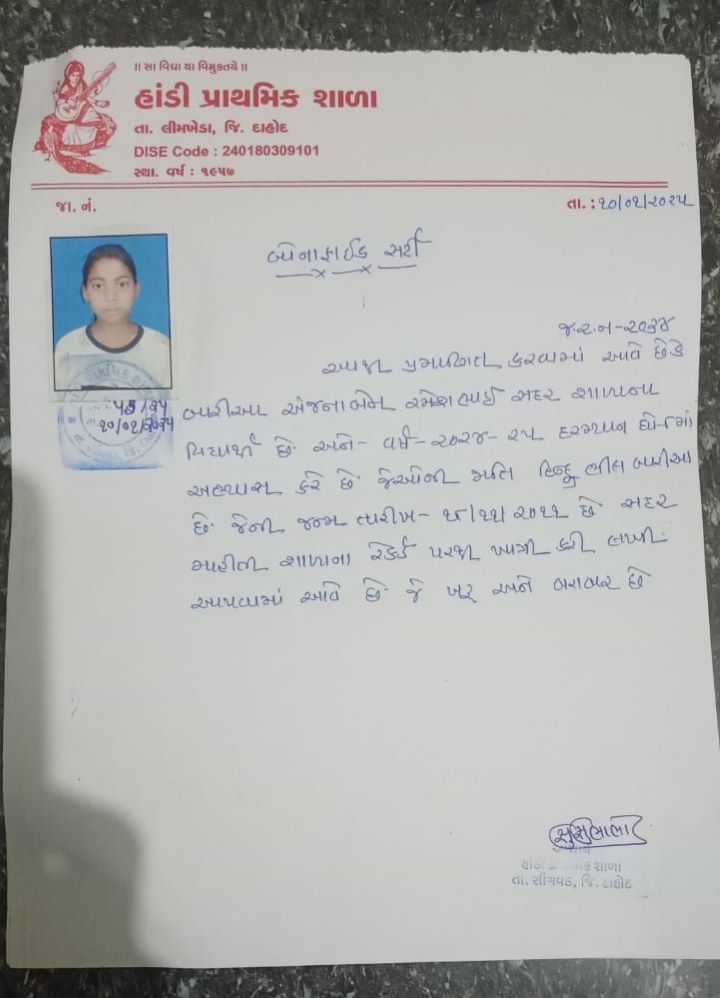 ॥ સા વિદ્યા યા વિમુક્તયે ॥
હાંડી પ્રાથમિક શાળા
તા. લીમખેડા, જિ. દાહોદ
DISE Code : 240180309101
સ્થા. વર્ષ : ૧૯૫૭
જા. નં.
તા. : ૧૦/૦૧/૨૦૨૫
બોનાફાઈડ સર્ટી
જ.ર.ન-૨૦૩૪
આથી પ્રમાણિત કરવામાં આવે છે કે
બારીઆ અંજનાબેન રમેશભાઈ સદર શાળાના
વિદ્યાર્થી છે અને- વર્ષ-૨૦૨૪-૨૫ દરમ્યાન ધો-૮માં
અભ્યાસ કરે છે જેઓની જાતિ હિન્દુ ભીલ બારીઆ
છે જેની જન્મ તારીખ- ૨૦૧૧ છે સદર
માહિતી શાળાના રેકર્ડ પરથી ખાત્રી કરી લખી
આપવામાં આવે છે જે ખરૂ અને બરાબર છે
૫૬/૨૫
તા. ૧૦/૦૧/૨૦૨૫
હાંડી પ્રાથમિક શાળા
તા. સીંગવડ, જિ. દાહોદ